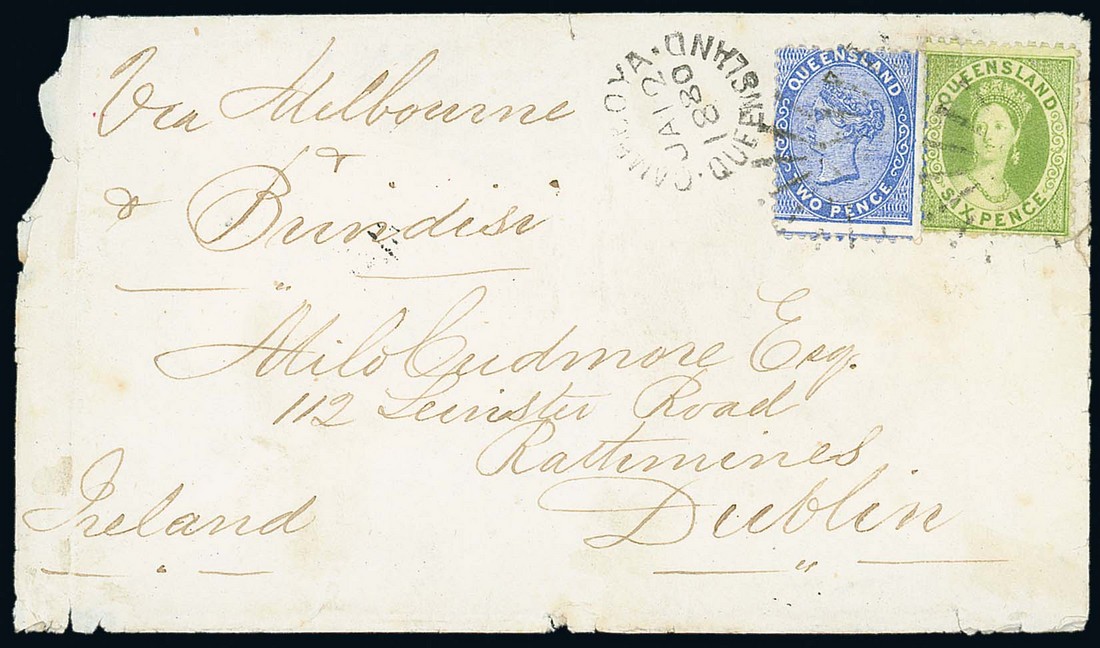 Via Melbourne
& Brindisi
CAMBOOYA
JA 12
1880
QUEENSLAND
QUEENSLAND
TWO PENCE
QUEENSLAND
SIX PENCE
Milo Cudmore Esq.
112 Leinster Road
Rathmines
Dublin
Ireland